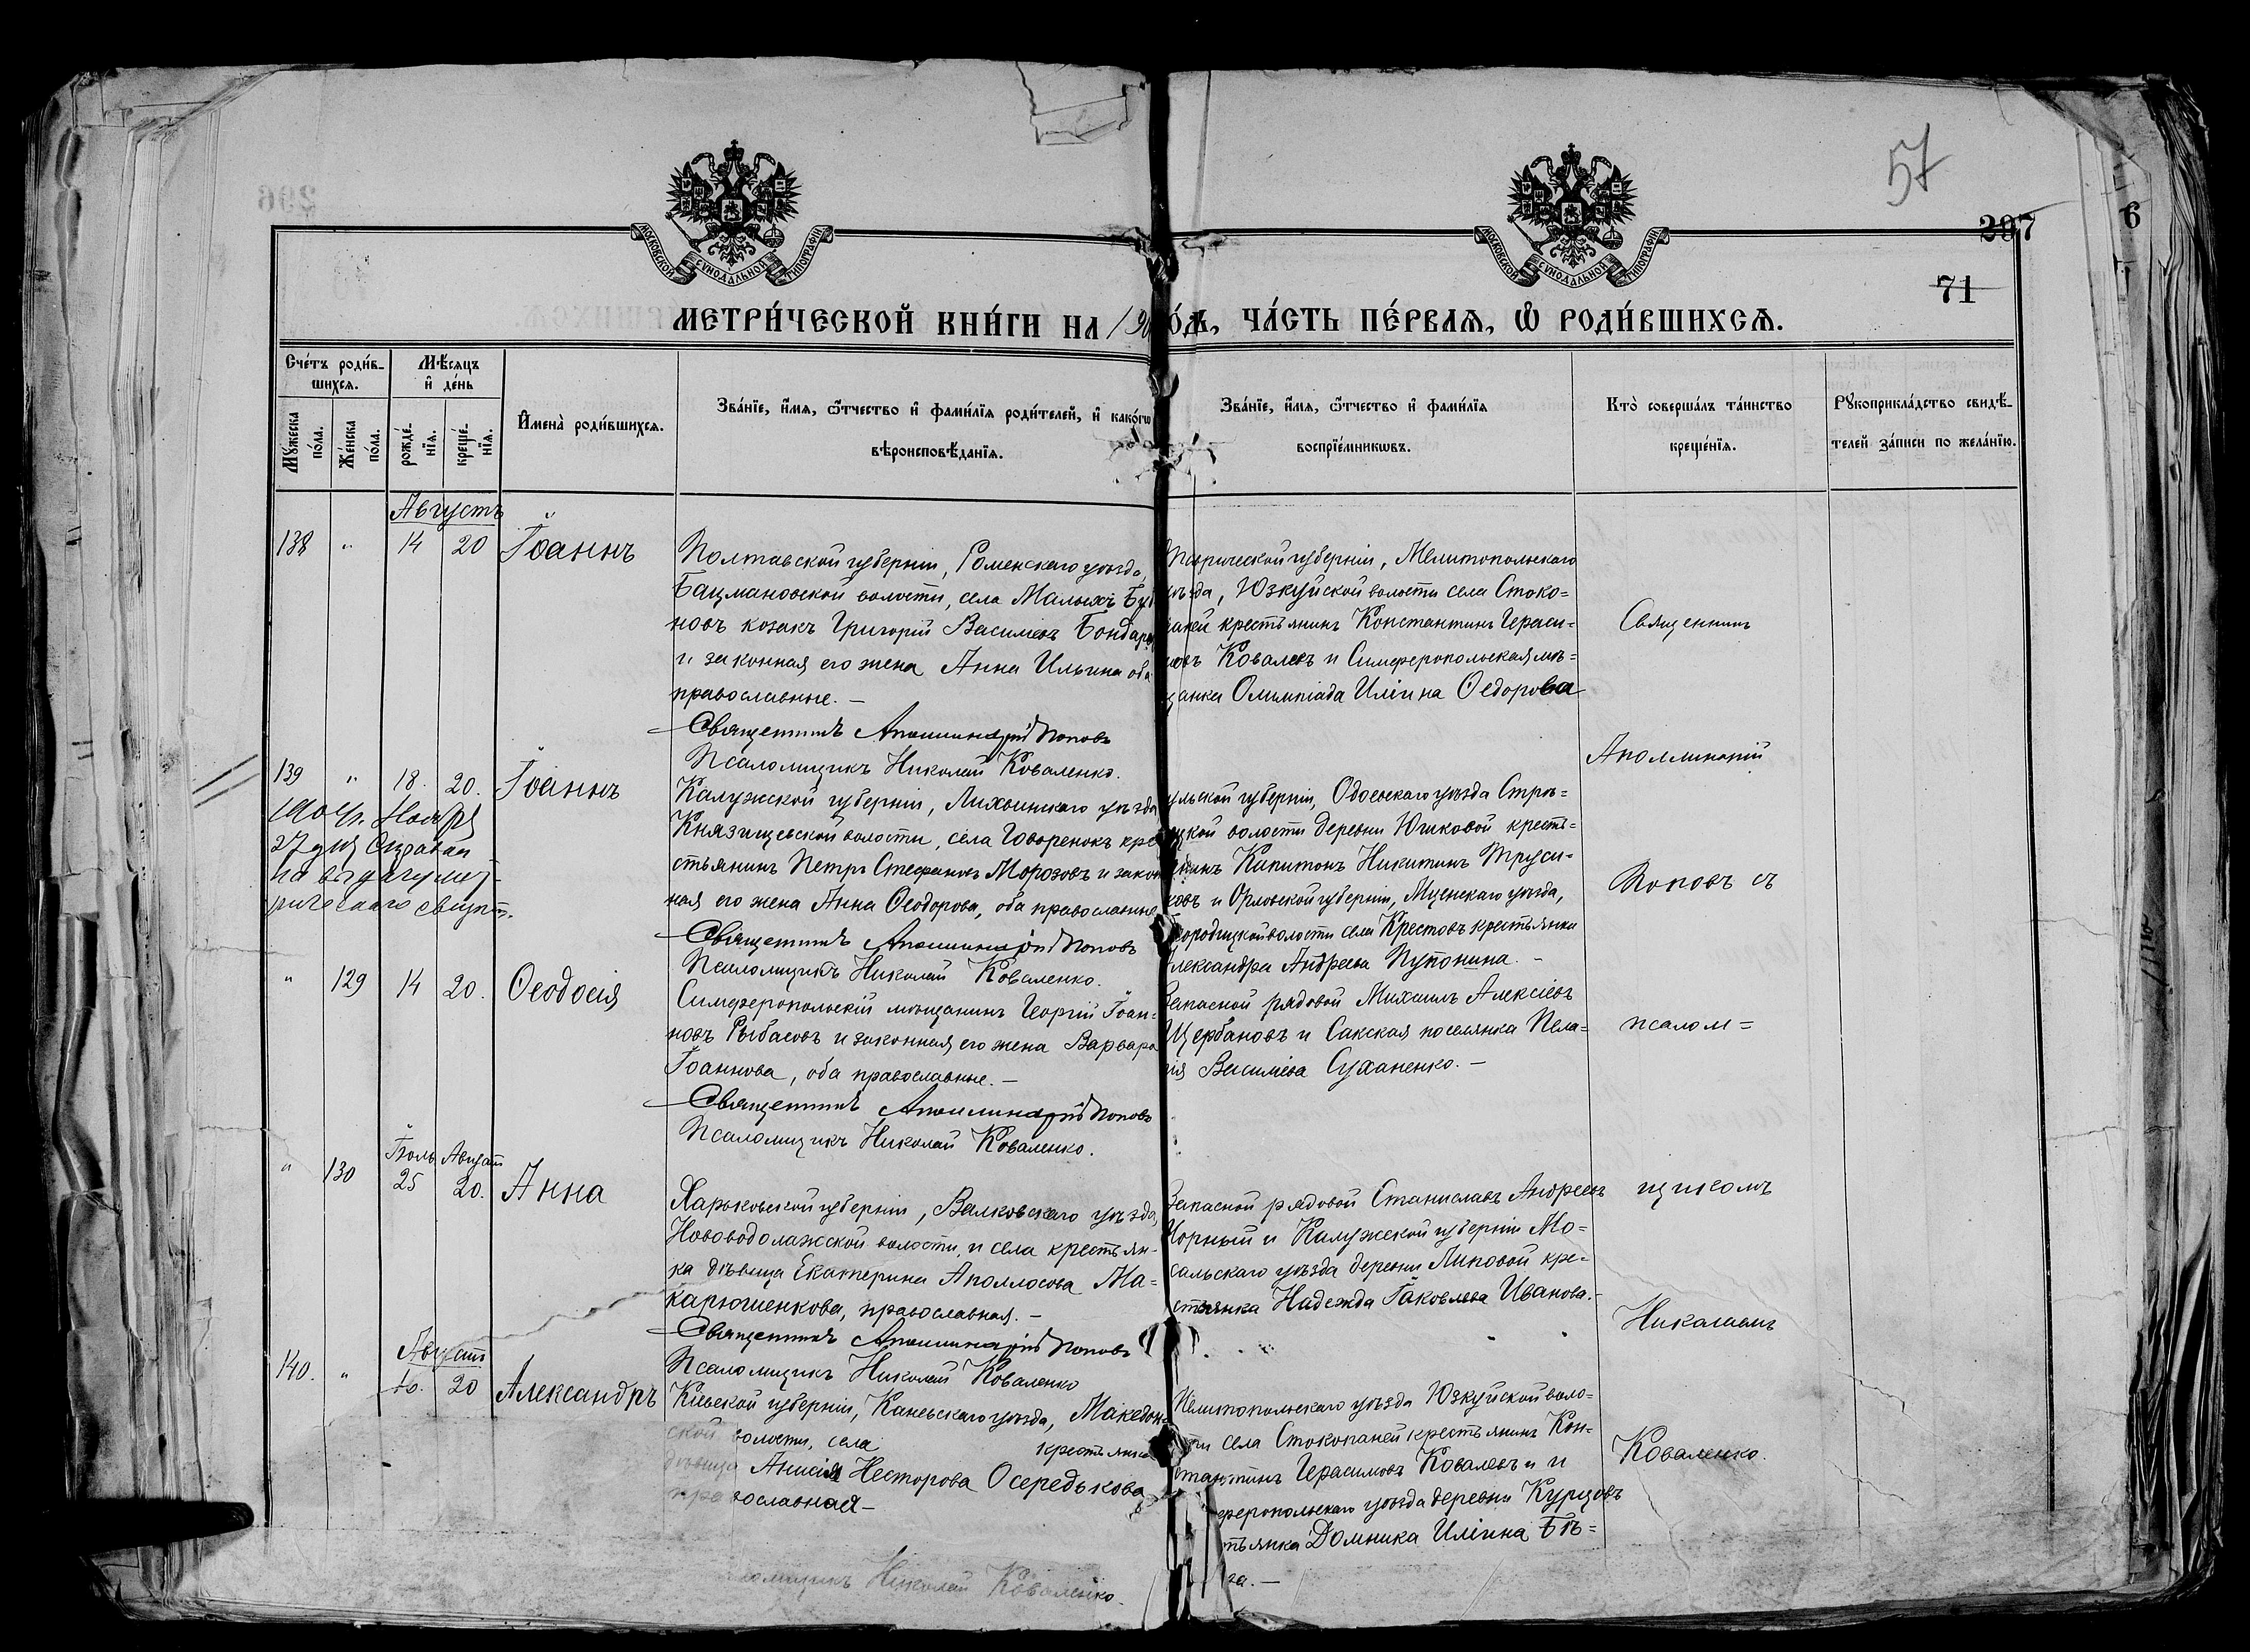 57
297
6
71
МОСКОВСКОЙ СУНОДАЛЬНОЙ ТИПОГРАФІИ
МОСКОВСКОЙ СУНОДАЛЬНОЙ ТИПОГРАФІИ
МЕТРИ́ЧЕСКОЙ КНИ́ГИ НА 190
О́ДЪ, ЧА́СТЬ ПЕ́РВАЯ, Ѡ РОДИ́ВШИХСЯ.
Сче́тъ роди́в-
шихся.
Мѣсяцъ
и де́нь
Мꙋжеска по́ла.
Же́нска по́ла.
рожде́-
нїя.
креще́-
нїя.
Имена̀ роди́вшихся.
Зва́нїе, и́мя, ѻ́тчество и фами́лїя роди́телей, и како́гѡ
вѣроисповѣ́данїя.
Зва́нїе, и́мя, ѻ́тчество и фами́лїя
воспрїе́мникѡвъ.
Кто̀ соверша́лъ та́инство
креще́нїя.
Рꙋкоприкла́дство свидѣ́-
телей за́писи по жела́нїю.
Августъ
138 " 14 20 Іоаннъ
Полтавской губерніи, Роменскаго уѣзда,
Бацмановской волости, села Малыхъ Бу
новъ козакъ Григорій Василіевъ Бондар
и законная его жена Анна Ильина оба
православные. —
Священникъ Аполлинарій Поповъ
Псаломщикъ Николай Коваленко.
Таврической губерніи, Мелитопольскаго
уѣзда, Юзкуйской волости села Стоко=
паней крестьянинъ Константинъ Гераси=
мовъ Ковалевъ и Симферопольская мѣ=
щанка Олимпіада Иліина Ѳедорова
Священникъ
139 " 18. 20. Іоаннъ
Ноября
27 дня Справка
на выдачу мет-
рическаго свидѣт.
Калужской губерніи, Лихвинскаго уѣзда
Князищевской волости, села Говоренокъ кре
стьянинъ Петръ Стефановъ Морозовъ и закон
ная его жена Анна Ѳеодорова, оба православные
Священникъ Аполлинарій Поповъ
Псаломщикъ Николай Коваленко.
ульской губерніи, Одоевскаго уѣзда Стрѣ=
цкой волости деревни Юшковой кресть=
янинъ Капитонъ Никитинъ Труси=
ковъ и Орловской губерніи, Мценскаго уѣзда,
Городищкой волости села Крестовъ крестьянка
Александра Андреева Пупонина. —
Аполлинарій
Поповъ съ
" 129 14 20. Ѳеодосія
Симферопольскій мѣщанинъ Георгій Іоан=
новъ Рыбасовъ и законная его жена Варвара
Іоаннова, оба православные. —
Священникъ Аполлинарій Поповъ
Псаломщикъ Николай Коваленко.
Запасной рядовой Михаилъ Алексіевъ
Щербановъ и Сакская поселянка Пела=
гія Василіева Суханенко. —
псалом=
Іюль Августъ
" 130 25 20. Анна
Харьковской губерніи, Валковскаго уѣзда,
Нововодолажской волости, и села крестьян-
ка дѣвица Екатерина Аполлосова Ма=
карюшенкова, православная. —
Священникъ Аполлинарій Поповъ
Псаломщикъ Николай Коваленко
Запасной рядовой Станиславъ Андреевъ
Чорный и Калужской губерніи Мо=
сальскаго уѣзда деревни Липовой кре=
стьянка Надежда Іаковлева Иванова. —
щикомъ
Николаемъ
Августъ
140. " 10. 20 Александръ
Кіевской губерніи, Каневскаго уѣзда, Македон
ской волости, села крестьянка
дѣвица Анисія Несторова Осередькова
православная —
ломщикъ Николай Коваленко.
Мелитопольскаго уѣзда Юзкуйской воло=
сти села Стокопаней крестьянинъ Кон=
стантинъ Герасимовъ Ковалевъ и и
феропольскаго уѣзда деревни Курцовъ
тьянка Домника Иліина Бѣ=
га. —
Коваленко.